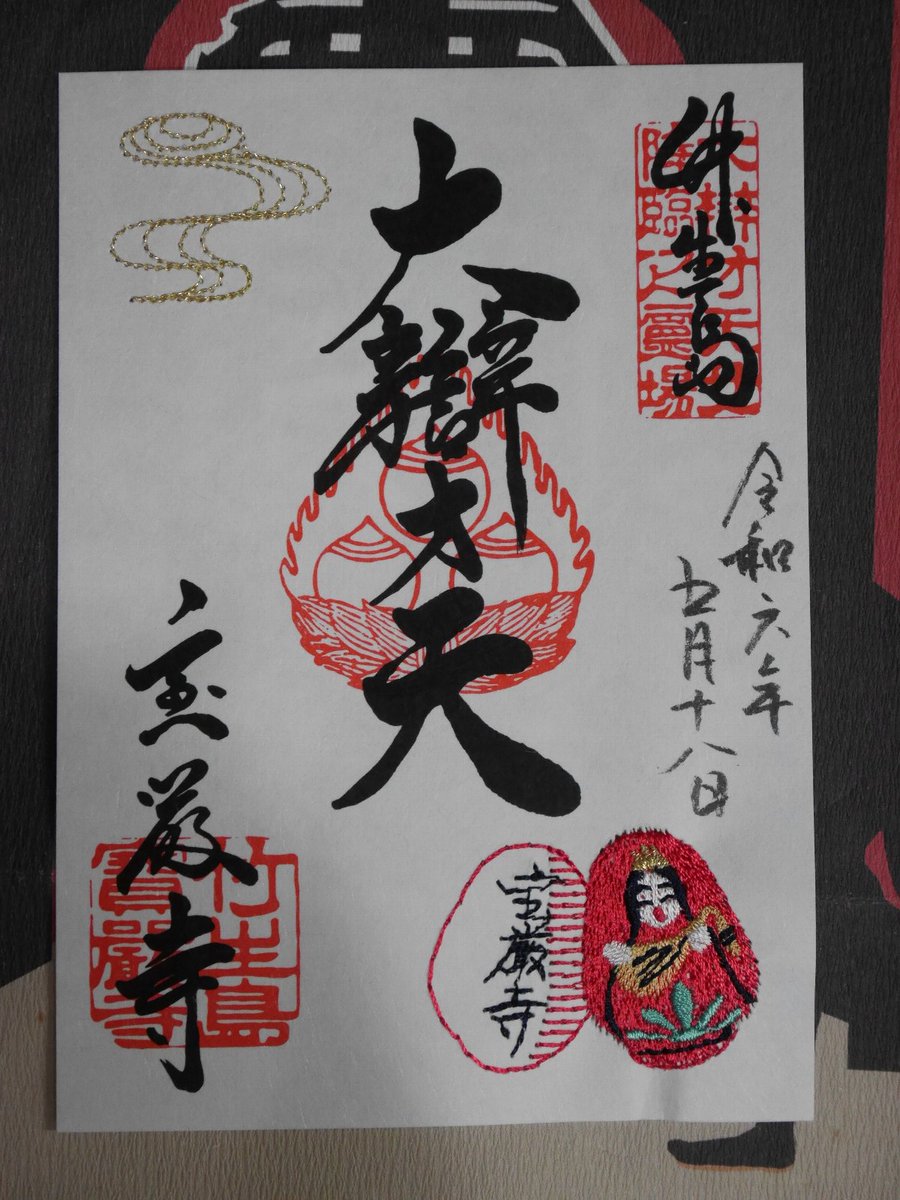 竹生島
大辯才天
降臨之霊場
令和六年
五月十八日
大辯才天
宝厳寺
竹生島
寶嚴寺
宝厳寺